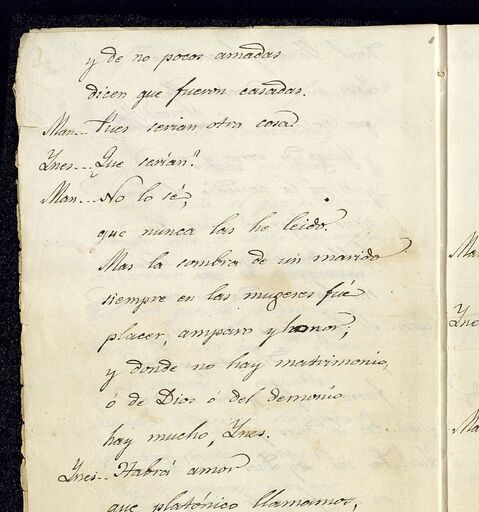 y de no pocos amadas
dicen que fueron casadas.
Man... Pues serian otra cosa?
Ynes... Que serian?
Man... No lo sé,
que nunca las he leido.
Mas la sombra de un marido
siempre en las mugeres fué
placer, amparo y honor;
y donde no hay matrimonio,
ó de Dios ó del demonio
hay mucho, Ynes.
Ynes... Habrá amor
que platónico llamamos,
Ma
Yne
Ma